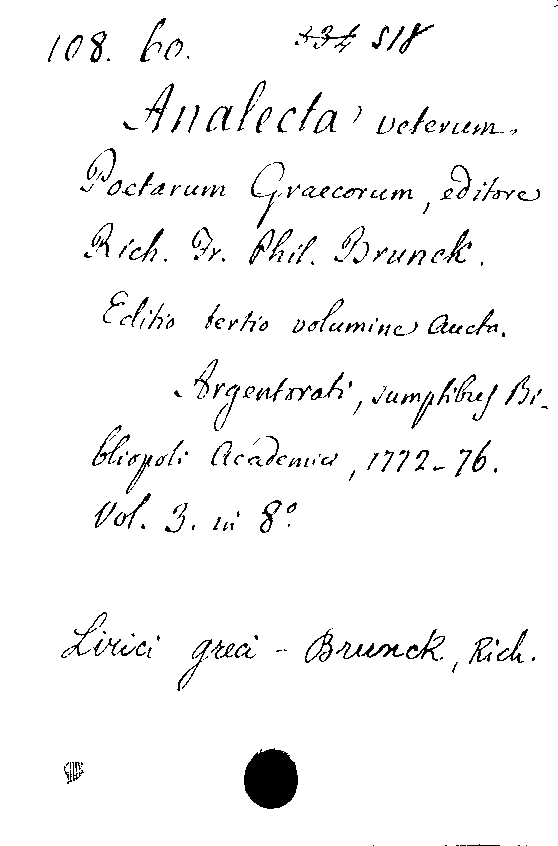 108. 60. 334 518
Analecta veterum
Poetarum Graecorum, editore
Rich. Fr. Phil. Brunck.
Editio tertio volumine aucta.
Argentorati, sumptibus Bi-
bliopoli Academici, 1772-76.
Vol. 3. in 8º.
Lirici greci - Brunck, Rich.